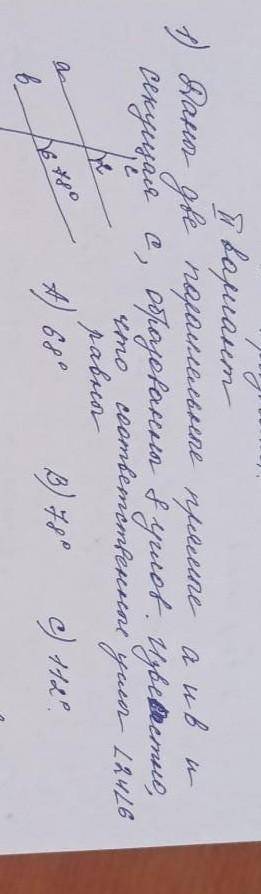 II вариант
1) Даны две параллельные прямые а и в и
секущая с, образованы 8 углов. Известно,
что соответственные углы ∠2 и ∠6
равны
а
2
с
в
6 78°
А) 68° В) 78° С) 112°.